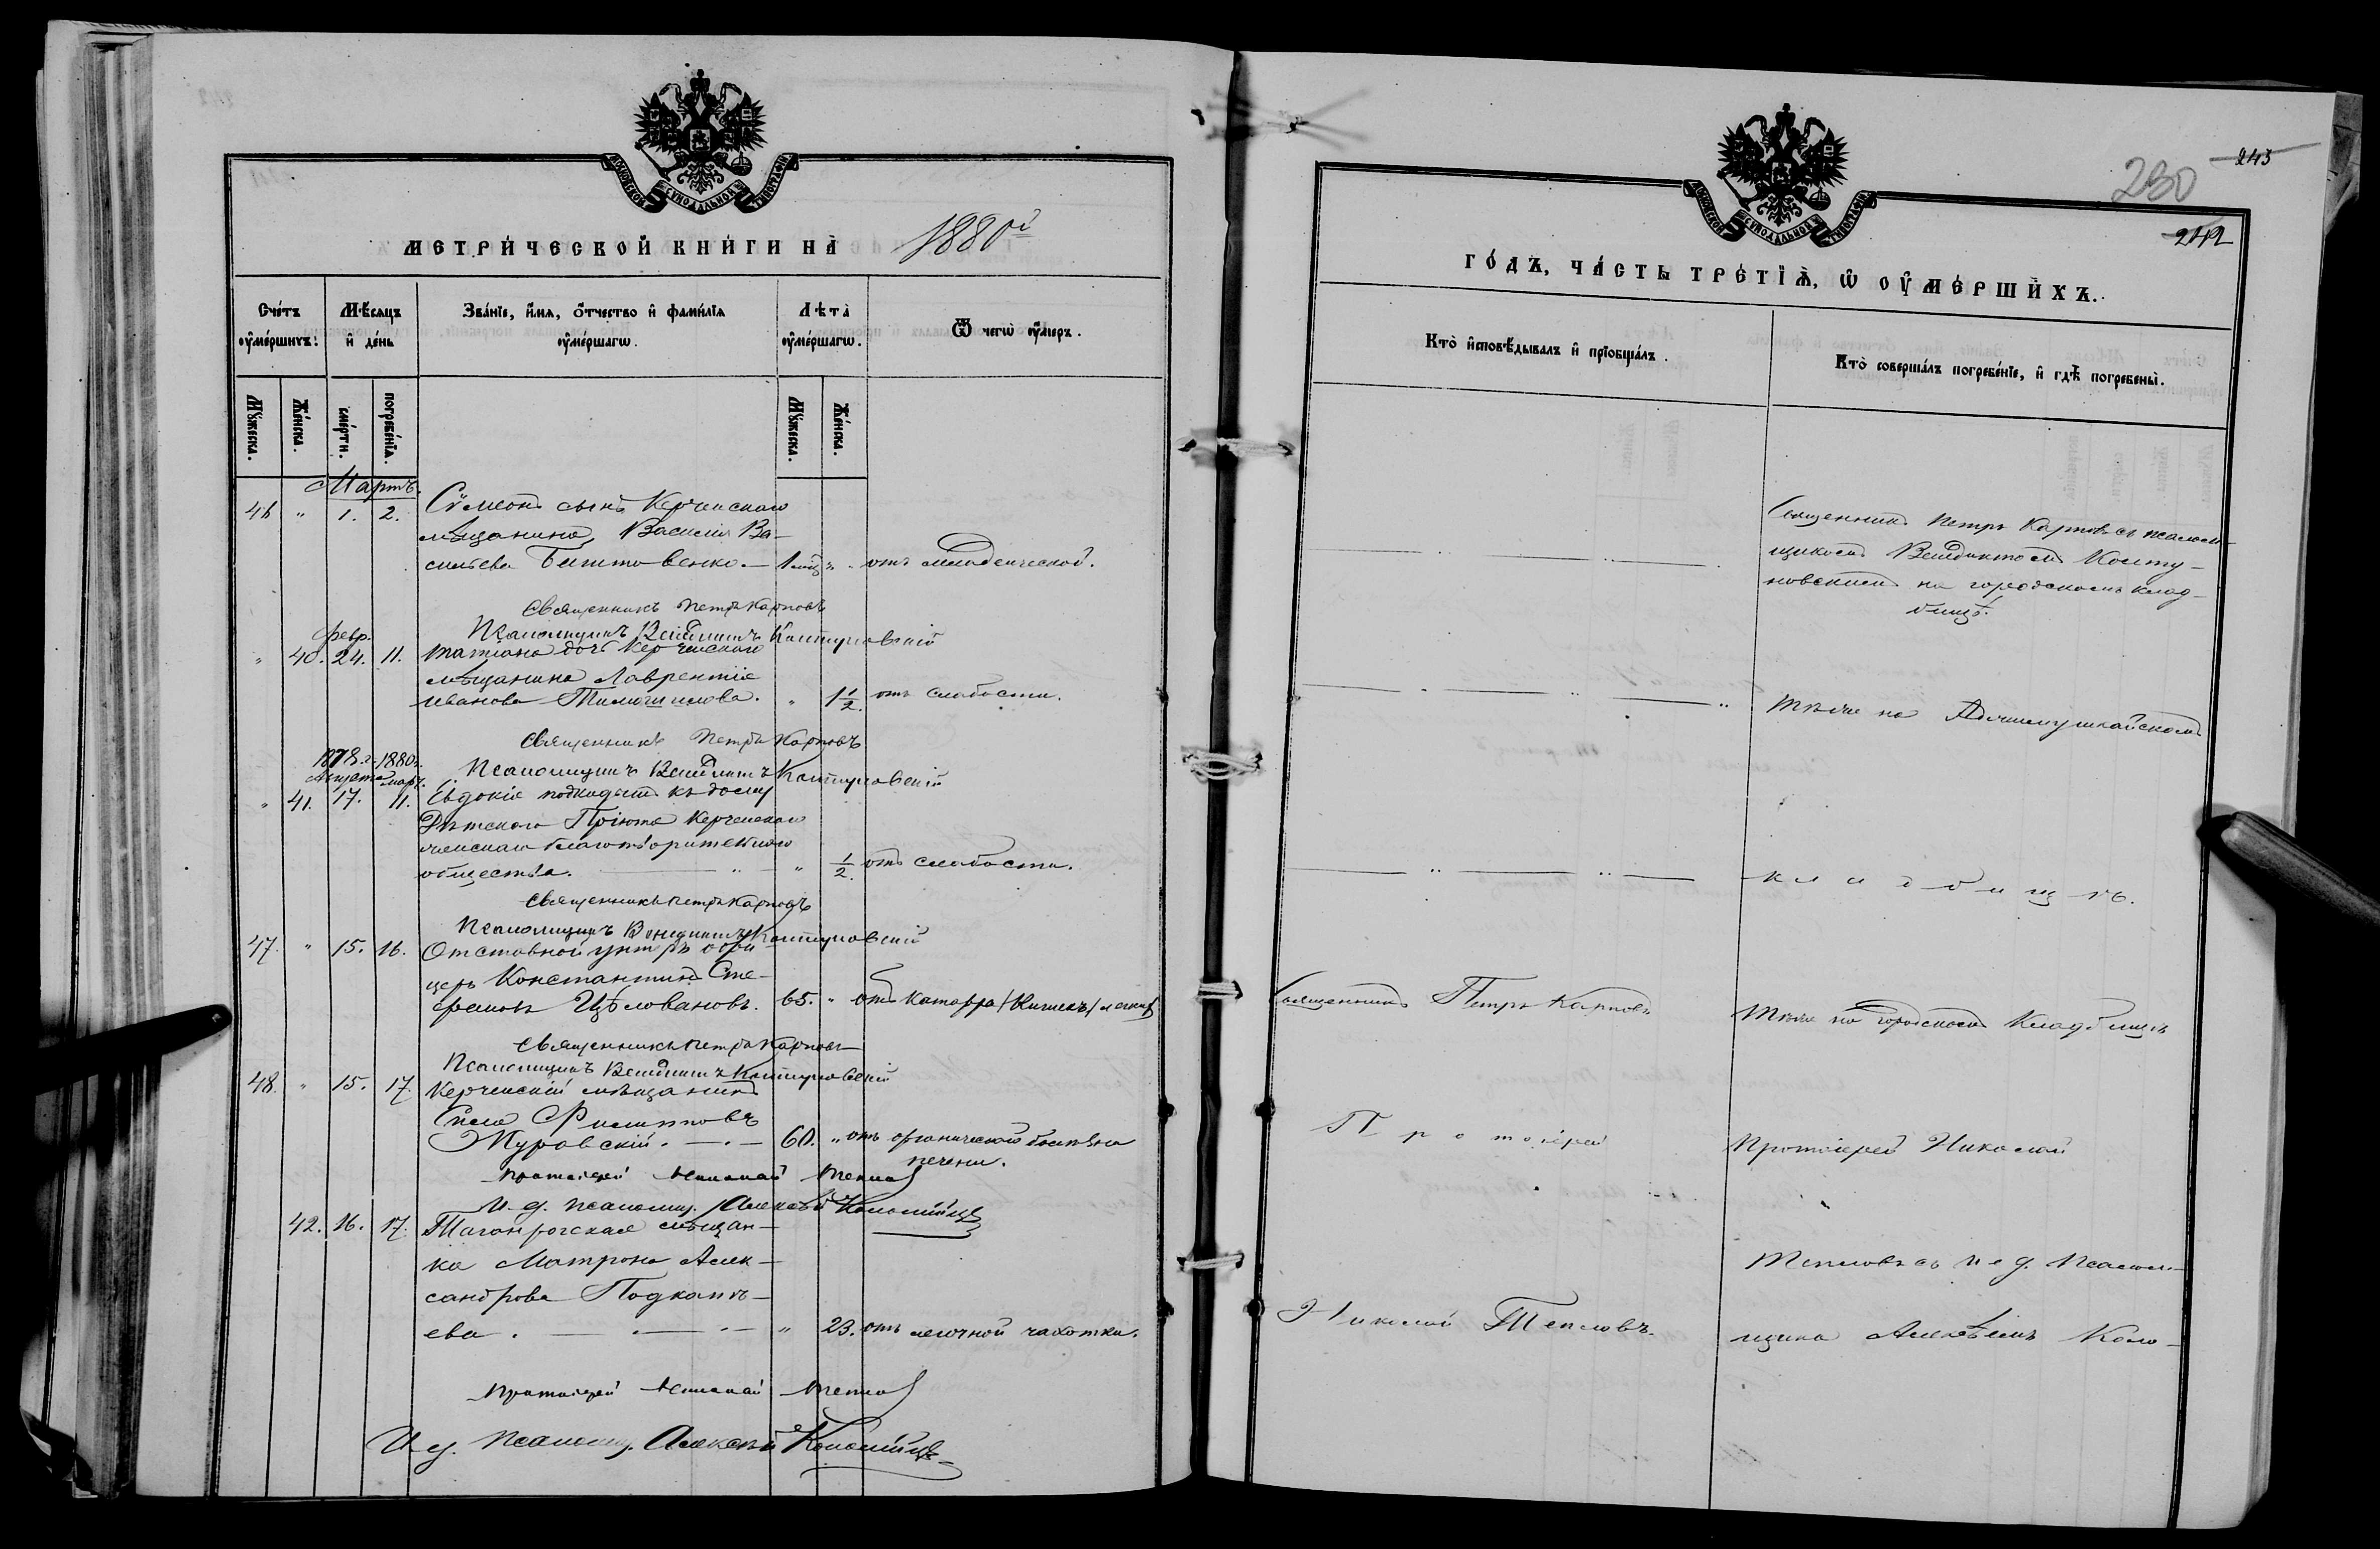 МОСКОВСКОЙ СѴНОДАЛЬНОЙ ТИПОГРАФІИ
МЕТРИ́ЧЕСКОЙ КНИ́ГИ НА̀ 1880й
Сче́тъ оу҆ме́ршихъ.
Мѣ́сяцъ и҆ де́нь
Зва́нїе, и҆́мя, ѻ҆́тчество и҆ фами́лїя оу҆ме́ршагѡ.
Лѣта̀ оу҆ме́ршагѡ.
Ѿ чегѡ̀ оу҆́меръ.
Мꙋ́жеска.
Же́нска.
сме́рти.
погребе́нїѧ.
Мꙋ́жеска.
Же́нска.
Мартъ.
46 " 1. 2. Сѵмеонъ сынъ Керченскаго
мѣщанина, Василія Ва-
сильева Битто венко. — 1 мѣс. " отъ младенческой.
Священникъ Петръ Карповъ
Псаломщикъ Венедиктъ Контуновскій
февр.
" 40. 24. 11. Татіана дочь Керченскаго
мѣщанина Лаврентія
Иванова Тимошинова. " 1 1/2. отъ слабости.
Священникъ Петръ Карповъ
1878 г. 1880 г. Псаломщикъ Венедиктъ Контуновскій
Августа март.
" 41. 17. 11. Евдокія подкидышъ къ дому
Дѣтскаго Пріюта Керченскаго
женскаго благотворительнаго
общества. — " — " 1/2. отъ слабости.
Священникъ Петръ Карповъ
Псаломщикъ Венедиктъ Контуновскій
47. " 15. 16. Отставной унтеръ офи-
церъ Константинъ Сте-
фановъ Цѣловановъ. 65. " отъ катарра /Кишекъ/ легкихъ
Священникъ Петръ Карповъ
Псаломщикъ Венедиктъ Контуновскій
48. " 15. 17. Керченскій мѣщанинъ
Сила Филипповъ
Журавскій. — . — 60. " отъ органической болѣзни
печени.
Протоіерей Николай Тепловъ
И. д. псаломщ. Алексѣй Коломійцъ
42. 16. 17. Таганрогская мѣщан-
ка Матрона Алек-
сандрова Подкапѣ-
ева. — . — . — " 23. отъ легочной чахотки.
Протоіерей Николай Тепловъ
И д. псаломщ. Алексѣй Коломійцъ
243
230
242
МОСКОВСКОЙ СѴНОДАЛЬНОЙ ТИПОГРАФІИ
ГО́ДЪ, ЧА́СТЬ ТРЕ́ТЇѦ, Ѡ҆ ОУ҆МЕ́РШИХЪ.
Кто̀ и҆сповѣ́дывалъ и҆ прїобща́лъ.
Кто̀ соверша́лъ погребе́нїе, и҆ гдѣ̀ погребены̀.
Священникъ Петръ Карповъ съ псалом-
щикомъ Венедиктомъ Конту-
новскимъ на городскомъ клад-
бищѣ.
Тѣ же на Аджимушкайскомъ
кладбищѣ.
Священникъ Петръ Карповъ
Тѣ же на городскомъ Кладбищѣ
Протоіерей
Протоіерей Николай
Тепловъ съ и д. псалом-
Николай Тепловъ.
щика Алексѣемъ Коло-